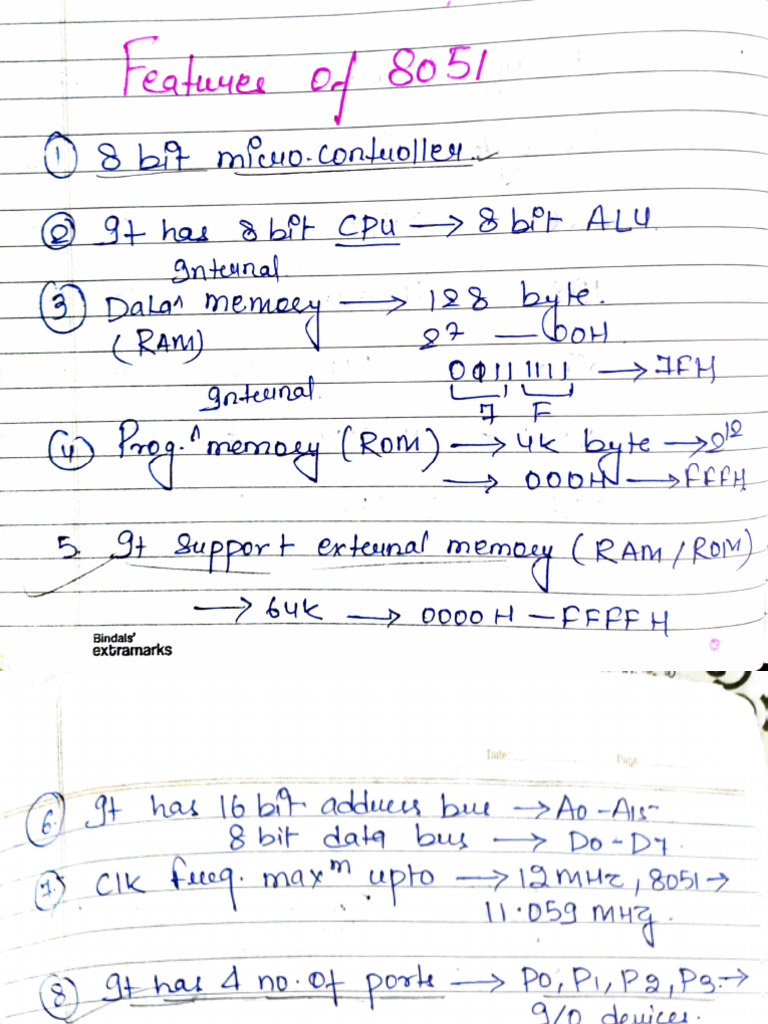 Features of 8051
① 8 bit micro-controller.
② It has 8 bit CPU → 8 bit ALU
Internal
③ Data ^ memory → 128 byte.
(RAM) 27 — 00H
0011 1111 → 7FH
7 F
Internal
④ Prog. ^ memory (ROM) → 4K byte → 2¹²
→ 000H → FFFH
5. It support external memory (RAM/ROM)
→ 64K → 0000H – FFFFH
Bindals'
extramarks
Date Page
⑥ It has 16 bit address bus → A0 – A15
8 bit data bus → D0 – D7.
⑦ Clk freq. maxᵐ upto → 12 MHz, 8051 →
11.059 MHz.
⑧ It has 4 no. of ports → P0, P1, P2, P3 →
I/O devices.